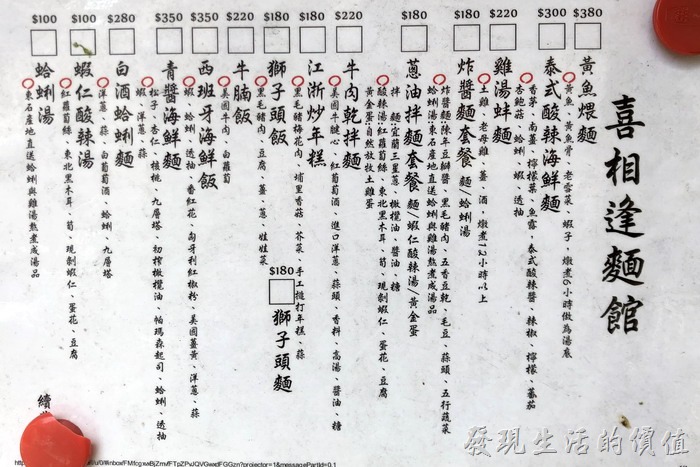 喜相逢麵館
$380
黃魚煨麵
黃魚、黃魚骨、老雪菜、蝦子、燉煮6小時做為湯底
$300
泰式酸辣海鮮麵
香茅、南薑、檸檬葉、魚露、泰式酸辣醬、辣椒、檸檬、蕃茄
杏鮑菇、蛤蜊、蝦、透抽
$220
雞湯蚌麵
土雞、老母雞、薑、酒、燉煮12小時以上
$180
炸醬麵套餐 麵/蛤蜊湯
炸醬麵陳年豆瓣醬、黑毛豬肉、五香豆乾、毛豆、蒜頭、五行蔬菜
蛤蜊湯:東石產地直送蛤蜊與雞湯熬煮成湯品
$180
蔥油拌麵套餐 麵/蝦仁酸辣湯/黃金蛋
拌麵宜蘭三星蔥、橄欖油、醬油、糖
酸辣湯:紅蘿蔔絲、東北黑木耳、筍、現剝蝦仁、蛋花、豆腐
黃金蛋:自然放牧土雞蛋
$220
牛肉乾拌麵
美國牛腱心、紅葡萄酒、進口洋蔥、蒜頭、香料、高湯、醬油、糖
$180
江浙炒年糕
黑毛豬梅花肉、埔里香菇、芥菜、手工搥打年糕、蒜
$180
獅子頭飯
黑毛豬肉、豆腐、薑、蔥、娃娃菜
$180
獅子頭麵
$220
牛腩飯
美國牛肉、白蘿蔔
$350
西班牙海鮮飯
蝦、蛤蜊、透抽、番紅花、匈牙利紅椒粉、美國薑黃、洋蔥、蒜
$350
青醬海鮮麵
松子、杏仁、核桃、九層塔、初榨橄欖油、帕瑪森起司、蛤蜊、透抽
蝦、洋蔥、蒜
$280
白酒蛤蜊麵
洋蔥、蒜、白葡萄酒、蛤蜊、九層塔
$100
蝦仁酸辣湯
紅蘿蔔絲、東北黑木耳、筍、現剝蝦仁、蛋花、豆腐
$100
蛤蜊湯
東石產地直送蛤蜊與雞湯熬煮成湯品
續
發現生活的價值